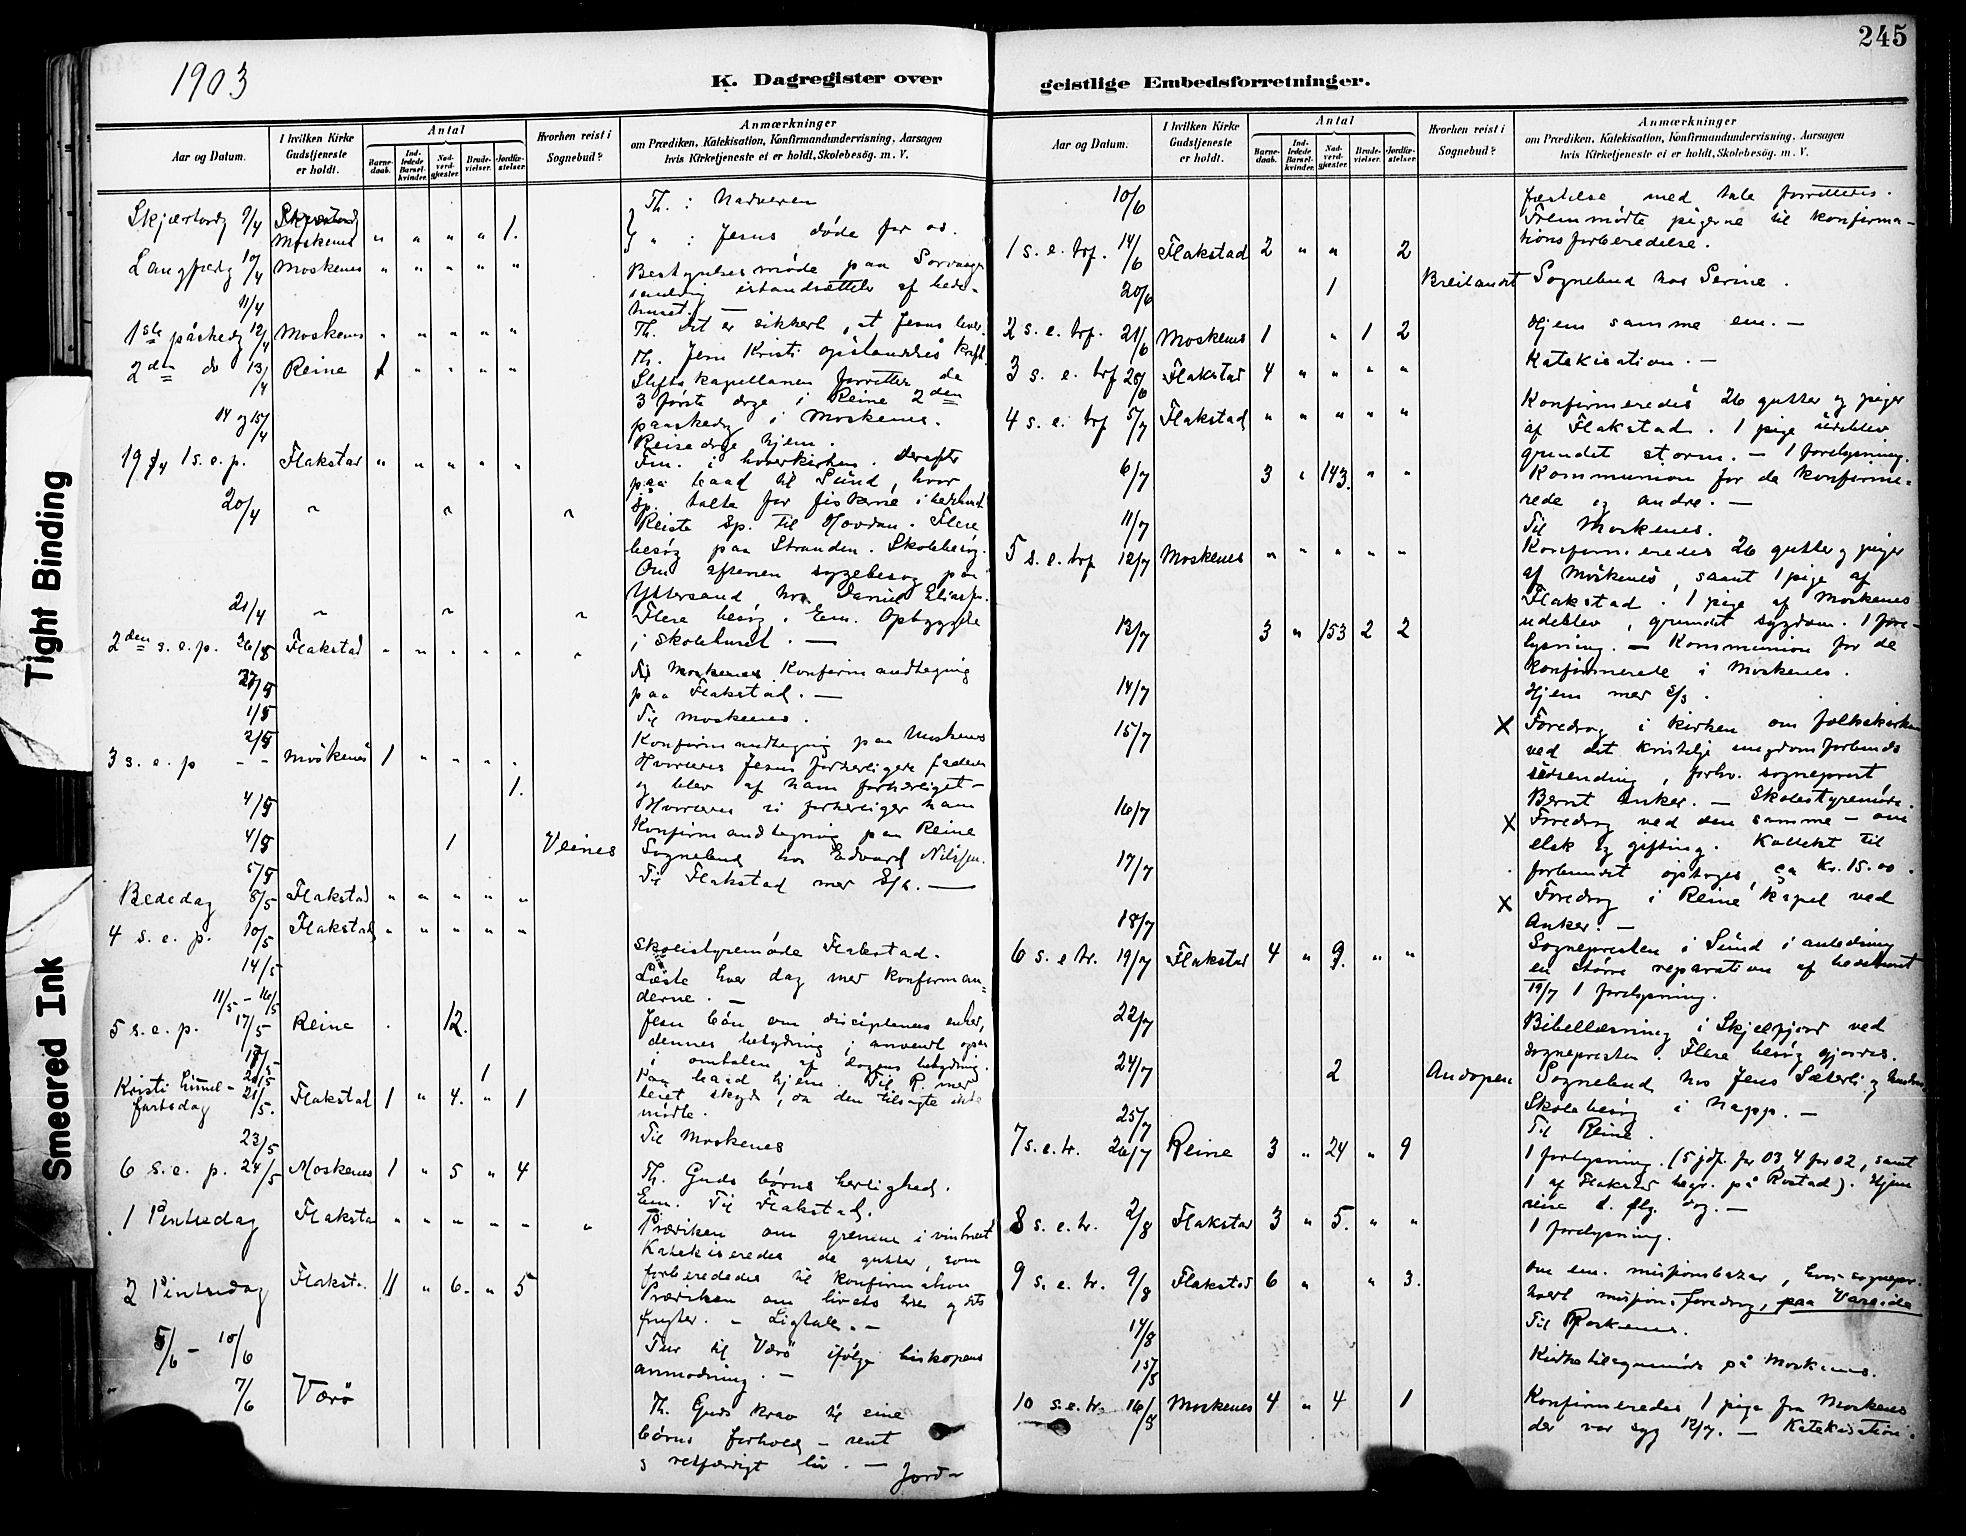 245
1903
K. Dagregister over
geistlige Embedsforretninger.
Tight Binding
Smeared Ink
Aar og Datum.
I hvilken Kirke
Gudstjeneste
er holdt.
Antal
Barne-
daab.
Ind-
ledede
Barsel-
kvinder.
Nad-
verd-
gjæster.
Brude-
vielser.
Jordfæ-
stelser.
Hvorhen reist i
Sognebud?
Anmærkninger
om Prædiken, Katekisation, Konfirmandundervisning, Aarsagen
hvis Kirketjeneste ei er holdt, Skolebesög. m. V.
Skjærtorsdg 9/4 Moskenes " " " " 1. Th. : Nadveren
" : Jesus døde for os.
Langfredg 10/4 Moskenes " " " " "
11/4 Bestyrelsesmøde paa Sorvaagen
istandsættelse af bede-
huset. —
1ste påskedg 12/4 Moskenes " " " " " Th. Det er sikkert, at Jesus lever.
2den do 13/4 Reine 1 " " " " Th. Jesu Kristi opstandelses kraft.
14 og 15/4 Stiftskapellanen forretter de
3 første dge i Reine 2den
paaskedg i Moskenes.
Reisedge hjem.
19/4 1 s. e. p. Flakstad " " " " " Fm. i hovedkirken. Derefter
paa baad til Sund, hvor
sp. talte for fiskerne i bedehuset
20/4 " " " Reiste sp. til Hovdan. Flere
besøg paa Stranden. Skolebesøg.
Om aftenen sygebesøg paa
Yttersand hos Daniel
21/4 " " " Flere besøg. Em. Opbyggelse
i skolehuset. —
2den s. e. p. 26/ Flakstad " " " " " "
27/ Til Moskenes Konfirmandtegning
paa Flakstad. —
1/5 Til Moskenes.
2/5 Konfirmandtegning paa Moskenes
3 s. e. p - - Moskenes 1 " " " " Hvorledes Jesus forherliger faderen
1. og blev af ham forherliget —
4/5 Hvorledes vi forherliger ham
Konfirmandtegning paa Reine
4/5 1 Veines Sognebud hos Edvard Nilssen.
5/5 Til Flakstad
Bededag 8/5 Flakstad " " " " "
4 s. e. p. 10/5 Flakstad " " " " "
14/5 Skolestyremøde Flakstad.
11/5 - 16/5 Læste hver dag med konfirman-
derne. —
5 s. e. p. 17/5 Reine . 12. Jesu bøn om disciplenes enhed,
dennes betydning, anvendt ogsaa
i omtalen af dagens betydning.
1 Paa baad hjem. Til R. med
Kristi himmel-
fartsdag 21/5. Flakstad 1 " 4. " 1 leiet skyds, da den tilsagte ikke
mødte.
23/5 Til Moskenes
6 s. e. p. 24/5 Moskenes 1 " 5 " 4 Th. Guds børns herlighed.
Em. Til Flakstad.
1 Pintsedag Flaksta " " " " " " Prædiken om grenene i vintræet
Katekiseredes de gutter, som
forberededes til konfirmation
2 Pintsedag Flakst. 11 " 6. " 5 Prædiken om livets træ og dets
frugter. - Ligtale. —
5/6 - 10/6 Tur til Værö ifølge biskopens
anmodning. —
7/6 Værö Th. Guds krav til sine
børns forhold - rent
og retfærdigt liv. — Jord-
Aar og Datum.
I hvilken Kirke
Gudstjeneste
er holdt.
Antal
Barne-
daab.
Ind-
ledede
Barsel-
kvinder.
Nad-
verd-
gjæster.
Brude-
vielser.
Jordfæ-
stelser.
Hvorhen reist i
Sognebud?
Anmærkninger
om Prædiken, Katekisation, Konfirmandundervisning, Aarsagen
hvis Kirketjeneste ei er holdt, Skolebesög. m. V.
10/6 fæstelse med tale forrettedes.
Fremmødte pigerne til konfirma-
tionsforberedelse.
1 s. e. trf. 14/6 Flakstad 2 " " 2
20/6 1 Breilandet Sognebud hos Serine.
2 s. e. trf. 21/6 Moskenes 1 " 1 2 Hjem samme em. —
3 s. e. trf 28/6 Flakstad 4 " " " " Katekisation. —
4 s. e. trf 5/7 Flakstad " " " " " Konfirmeredes 26 gutter og piger
af Flakstad. 1 pige udeblev
grundet storm. — 1 forelysning.
6/7 3 " 143. " " Kommunion for de konfirme-
rede og andre. —
11/7 Til Moskenes.
5 s. e. trf 12/7 Moskenes " " " " " Konfirmeredes 26 gutter og piger
af Moskenes, samt 1 pige af
Flakstad. 1 pige af Moskenes
udeblev, grundet sygdom. 1 fore-
lysning. — Kommunion for de
13/7 3 " 153 2 2 konfirmerede i Moskenes.
14/7 Hjem med
15/7 X Foredrag i kirken om folkekirken
ved det kristelige ungdomsforbunds
udsending, forhv. sogneprest
Bernt Anker. — Skolestyremøde.
16/7 X Foredrag ved den samme - om
elsk og gifting. Kollekt til
17/7 forbundet optoges, ca Kr. 15.00.
X Foredrag i Reine kapel ved
18/7 Anker. —
6 s. e tr. 19/7 Flakstad 4 " 9. " " Sognepresten i Sund i anledning
en større reparation af bedehuset
19/7 1 forelysning.
22/7 Bibellæsning i Skjelfjord ved
sognepresten. Flere besøg gjordes.
24/7 2 Andopen Sognebud hos Jens Sæterli og hustru
Skolebesøg i Napp. —
25/7 Til Reine.
7 s. e. tr. 26/7 Reine 3 " 24 " 9 1 forlysning. (5 jdf. for 03, 4 for 02, samt
1 af Flakstad begr. på Rostad). Hjem
reise d. flg. dag. —
8 s. e. tr. 2/8 Flakstad 3 " 5. " " 1 forelysning.
9 s. e. tr. 9/8 Flakstad 6 " " 3. om em. misjonsbazar, hvor sognepr.
holdt misjonsforedrag, paa Vareide
14/8 Til Moskenes.
15/8 Kirketilsynsmøde på Moskenes.
10 s. e. tr. 16/8 Moskenes 4 " 4 1 Konfirmeredes 1 pige fra Moskenes
der var syg 12/7. — Katekisation.